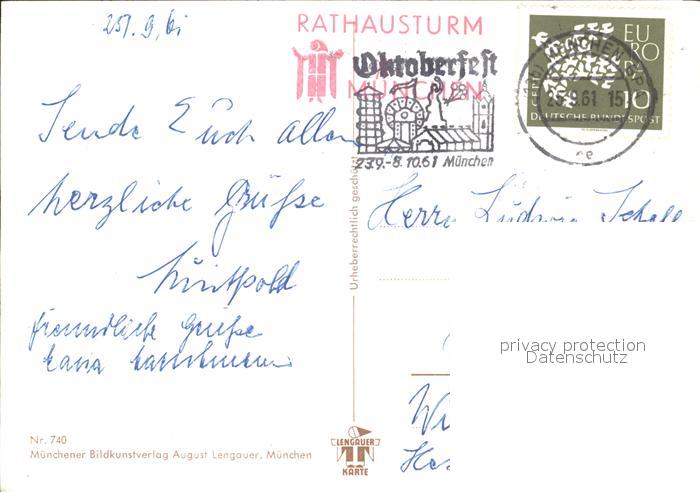 25.9.61
RATHAUSTURM
MÜNCHEN
Oktoberfest
23.9.-8.10.61 München
EUROPA
CEPT
10
DEUTSCHE BUNDESPOST
MÜNCHEN
.61 15
Sende Euch allen
herzliche Grüße
freundliche Grüße
Urheberrechtlich geschützt
Herrn Ludwig
Wi
Hes
privacy protection
Datenschutz
Nr. 740
Münchener Bildkunstverlag August Lengauer, München
LENGAUER
KARTE